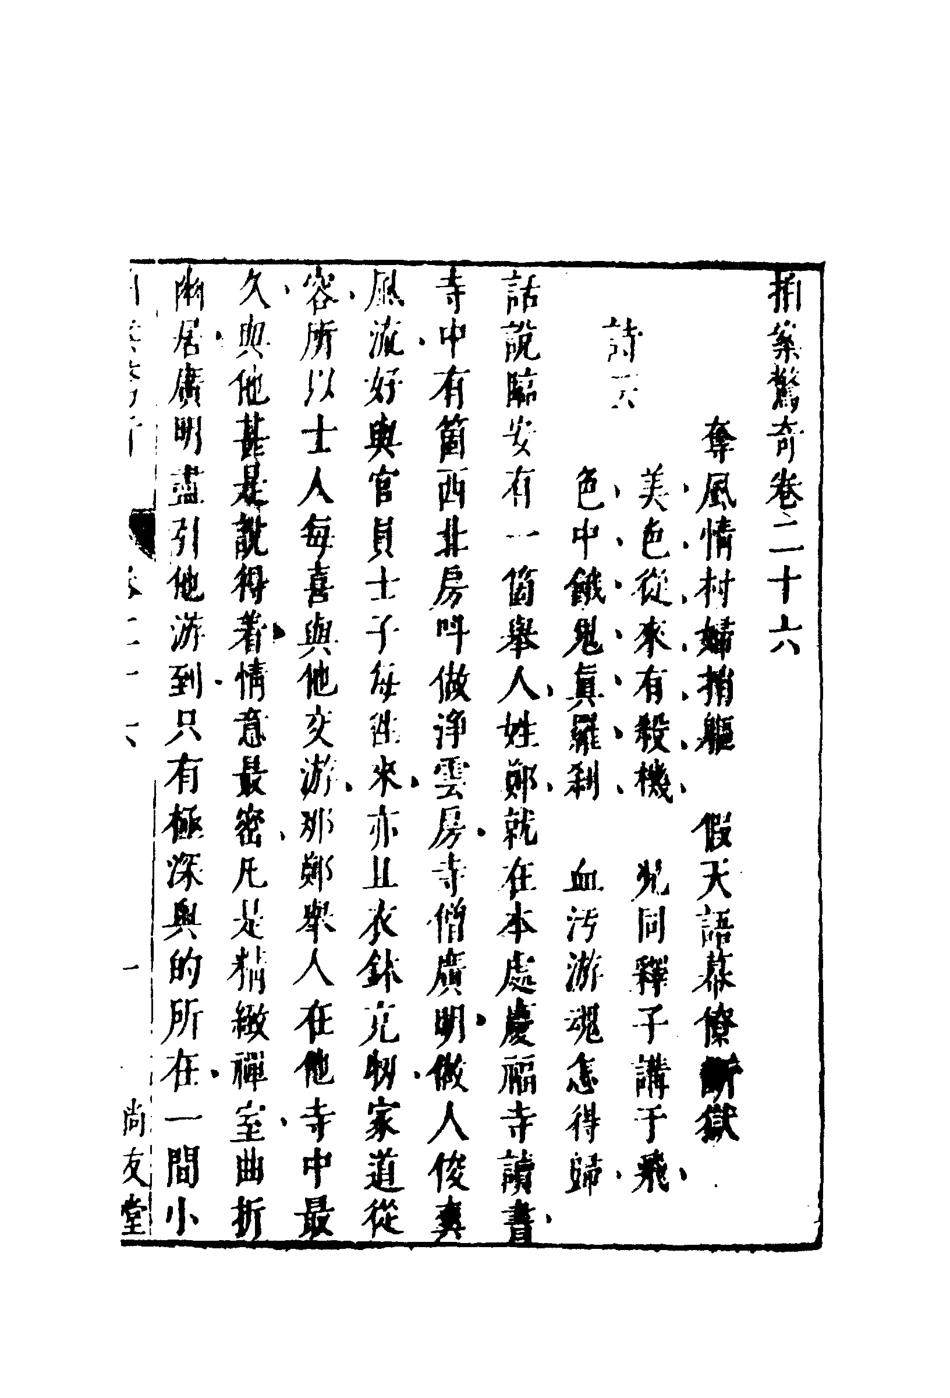 拍案驚奇卷二十六
奪風情村婦捐軀　假天語幕僚斷獄
詩云
美色從來有殺機　況同釋子講于飛
色中餓鬼眞羅刹　血汚游魂怎得歸
話說臨安有一箇舉人姓鄭就在本處慶福寺讀書
寺中有箇西北房呌做淨雲房寺僧廣明做人俊爽
風流好與官員士子每徃來亦且衣鉢充牣家道從
容所以士人每喜與他交游那鄭舉人在他寺中最
久與他甚是說得着情意最密凡是精緻禪室曲折
幽居廣明盡引他游到只有極深奥的所在一間小
卷二十六　一　尚友堂